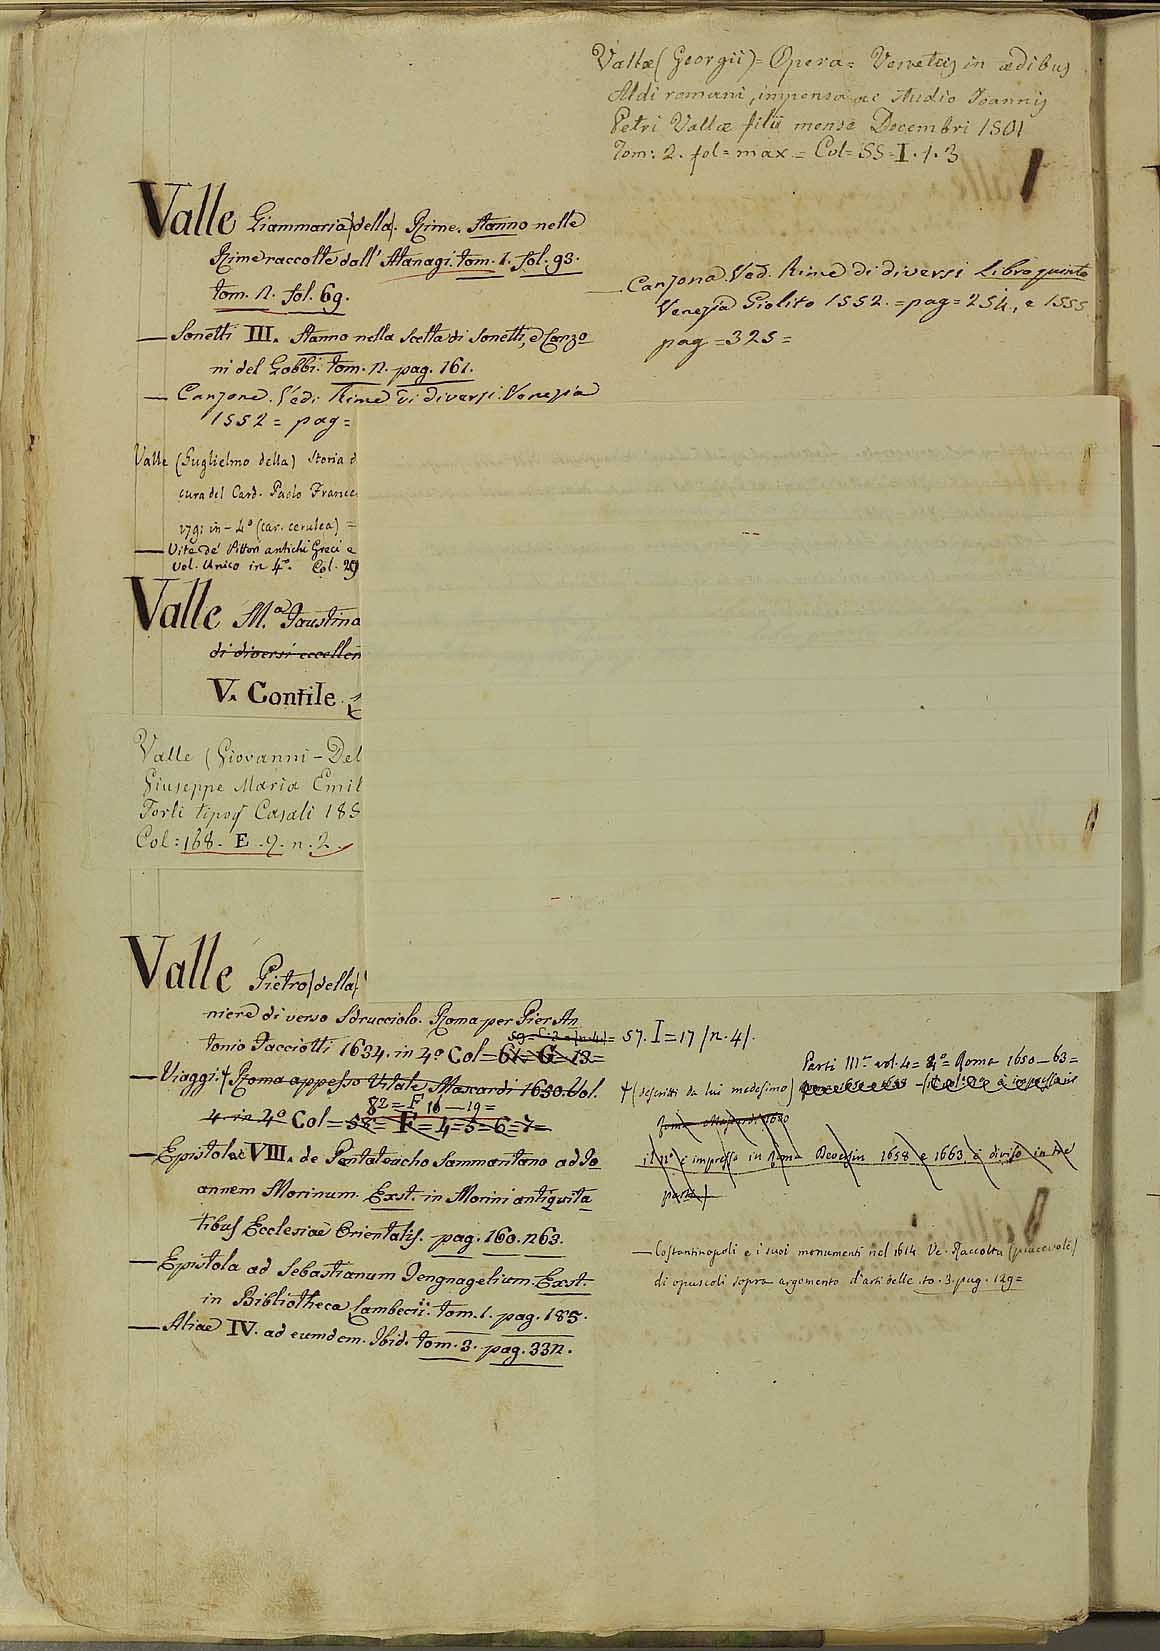 Vallæ (Georgii) = Opera = Venetiis in ædibus
Aldi romani, impensa ac studio Joannis
Petri Vallæ filii mense Decembri 1501
Tom: 2. fol = max = Col = SS = I. 1. 3
Valle Giammaria (della). Rime. Stanno nelle
Rime raccolte dall' Atanagi. tom. 1. fol. 93.
tom. 2. fol. 69.
— Sonetti III. Stanno nella Scelta di Sonetti, e Canzo
ni del Gobbi. tom. 2. pag. 161.
— Canzone. Vedi Rime di diversi. Venezia
1552 = pag =
— Canzona. Ved. Rime di diversi Libro quinto
Venezia Giolito 1552. = pag = 254, e 1555
pag = 325 =
Valle (Guglielmo della) Storia d
cura del Card. Paolo France
179: in - 4º (car. cerulea) =
— Vite de' Pittori antichi Greci e
vol. Unico in 4º. Col. 29
Valle M.ª Faustina
di diversi eccellen
V. Contile
Valle (Giovanni - Del
Giuseppe Maria Emil
Forlì tipog Casali 188
Col: 168. E. 9. n. 2.
Valle Pietro (della)
niere di verso Sdrucciolo. Roma per Pier An
tonio Facciotti 1634. in 4º Col = 61 = G = 13 =
= 57. I = 17 (n. 4).
— Viaggi. Roma appresso Vitale Mascardi 1650. Vol.
82 = F 16 — 19 =
4. in 4º Col = 58 = F = 4 = 5 = 6 = 7 =
Parti III vol. 4 = 4º = Roma 1650 — 63 =
(descritti da lui medesimo)
Roma Mascardi 1650
il 2º è impresso in Roma Deversin 1658 e 1663, è diviso in tre
parti)
— Epistolae VIII. de Pentateucho Sammaritano ad Jo
annem Morinum. Exst. in Morini antiquita
tibus Ecclesiae Orientalis. pag. 160. 263.
— Epistola ad Sebastianum Tengnagelium. Exst.
in Bibliotheca Lambecii. tom. 1. pag. 185.
— Aliae IV. ad eumdem. Ibid. tom. 3. pag. 332.
— Costantinopoli e i suoi monumenti nel 1614 Ve. Raccolta (piacevole)
di opuscoli sopra argomento d'arti belle. to. 3. pag. 129 =